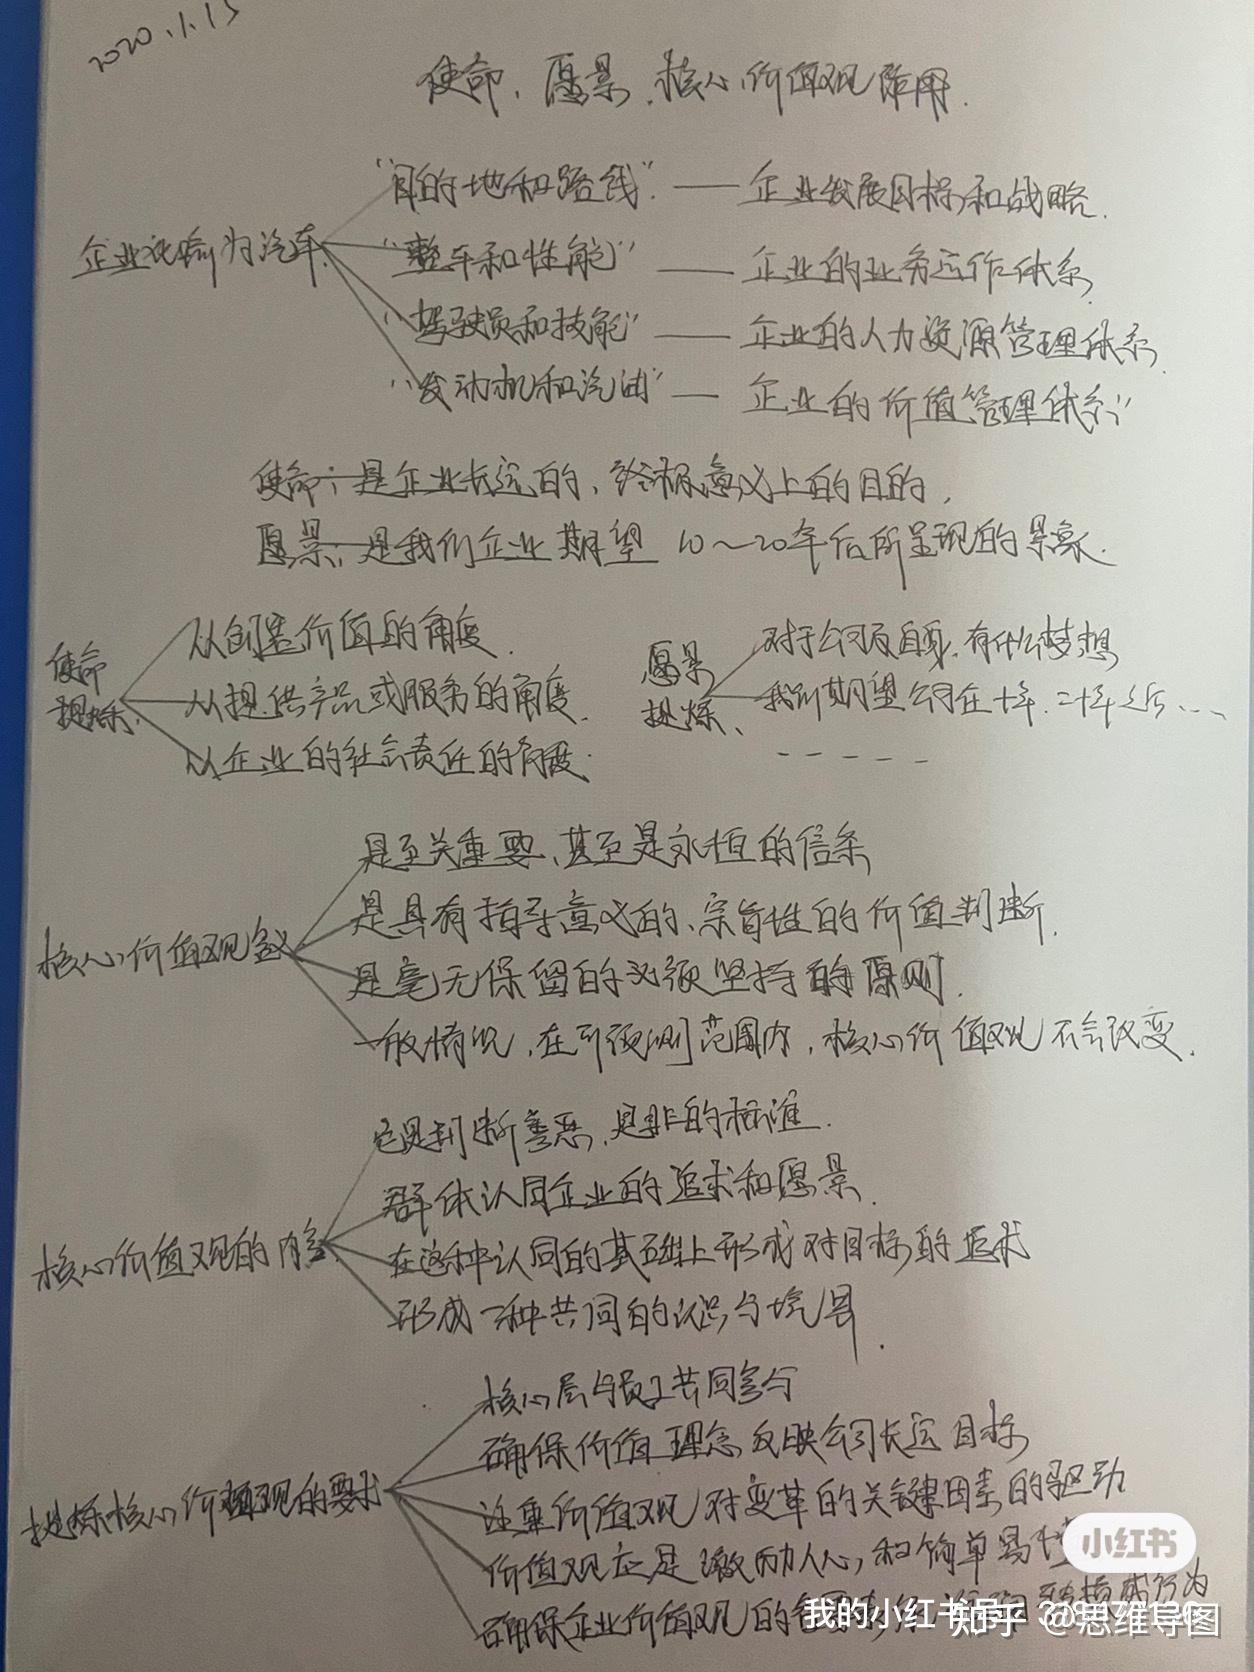 2020.11.15
使命、愿景、核心价值观作用.
"目的地和路线" —— 企业发展目标和战略.
企业比喻为汽车.
"整车和性能" —— 企业的业务运作体系
"驾驶员和技能" —— 企业的人力资源管理体系
"发动机和汽油" —— 企业的价值管理体系"
使命:是企业长远的、终极意义上的目的.
愿景:是我们企业期望 10~20年后所呈现的景象.
使命提炼.
从创造价值的角度.
从提供产品或服务的角度.
从企业的社会责任的角度.
愿景提炼、
对于公司及自身.有什么梦想
我们期望公司在十年.二十年之后...
-----
是至关重要、甚至是永恒的信条
是具有指导意义的、宗旨性的价值判断.
核心价值观含义
是毫无保留的必须坚持的原则.
一般情况,在可预测范围内,核心价值观不会改变.
它是判断善恶、是非的标准.
群体认同企业的追求和愿景.
核心价值观的内容
在这种认同的基础上形成对目标的追求
形成一种共同的认识与境界.
核心层与员工共同参与
确保价值理念反映公司长远目标
提炼核心价值观的要求
注重价值观对变革的关键因素的驱动
价值观应是激励人心,和简单易
确保企业价值观的 转换成行为
小红书
我的小红书号:
知乎 @思维导图